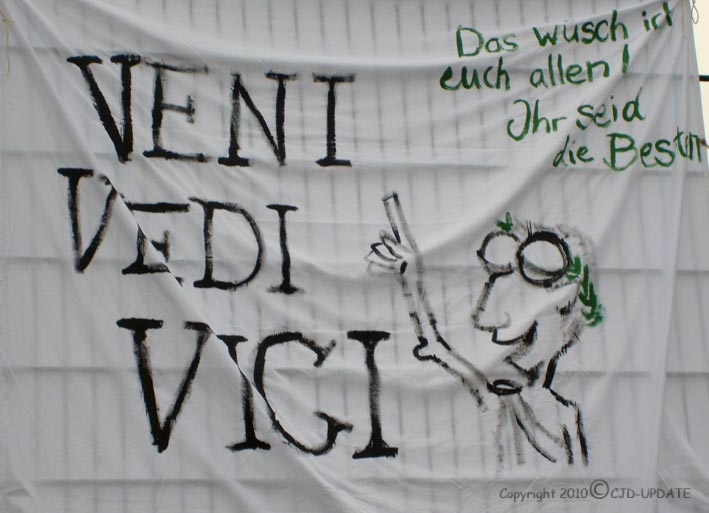 VENI
VEDI
VIGI
Das wüsch ich
euch allen!
Ihr seid
die Besten
Copyright 2010©CJD-UPDATE